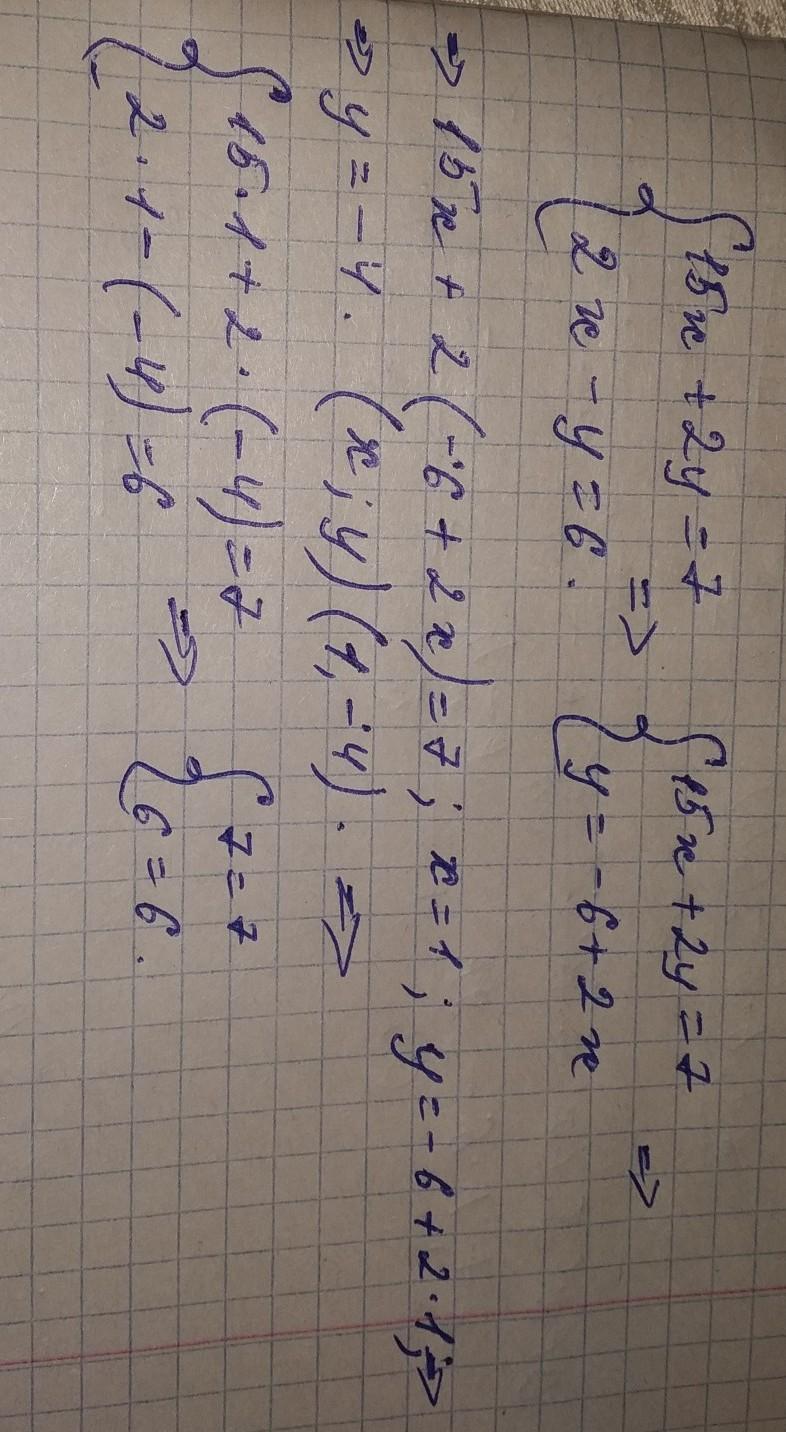 { 15x + 2y = 7
{ 2x - y = 6. => { 15x + 2y = 7
{ y = -6 + 2x =>
=> 15x + 2(-6 + 2x) = 7; x = 1; y = -6 + 2·1; =>
=> y = -4. (x; y) (1, -4). =>
{ 15·1 + 2·(-4) = 7
{ 2·1 - (-4) = 6 => { 7 = 7
{ 6 = 6.